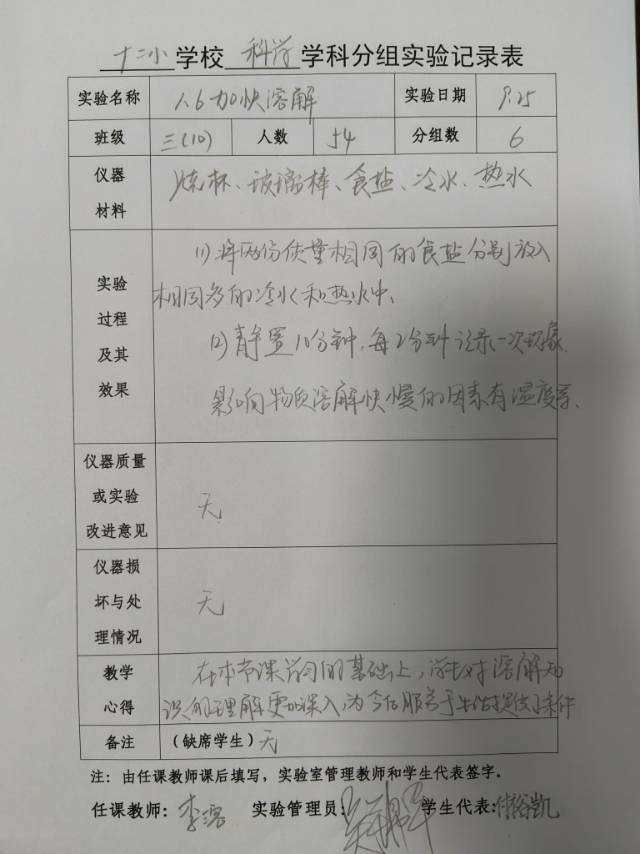 十二小学校 科学 学科分组实验记录表
实验名称 1.6加快溶解 实验日期 9.25
班级 三(10) 人数 54 分组数 6
仪器材料 烧杯、玻璃棒、食盐、冷水、热水
实验过程及其效果
(1)将两份质量相同的食盐分别放入
相同多的冷水和热水中、
(2)静置10分钟,每2分钟记录一次现象.
影响物质溶解快慢的因素有温度等、
仪器质量或实验改进意见 无
仪器损坏与处理情况 无
教学心得 在本节课学习的基础上,学生对溶解知
识的理解更加深入,为今后服务于生活提供了条件
备注 (缺席学生) 无
注:由任课教师课后填写,实验室管理教师和学生代表签字。
任课教师:李 实验管理员: 学生代表:凯